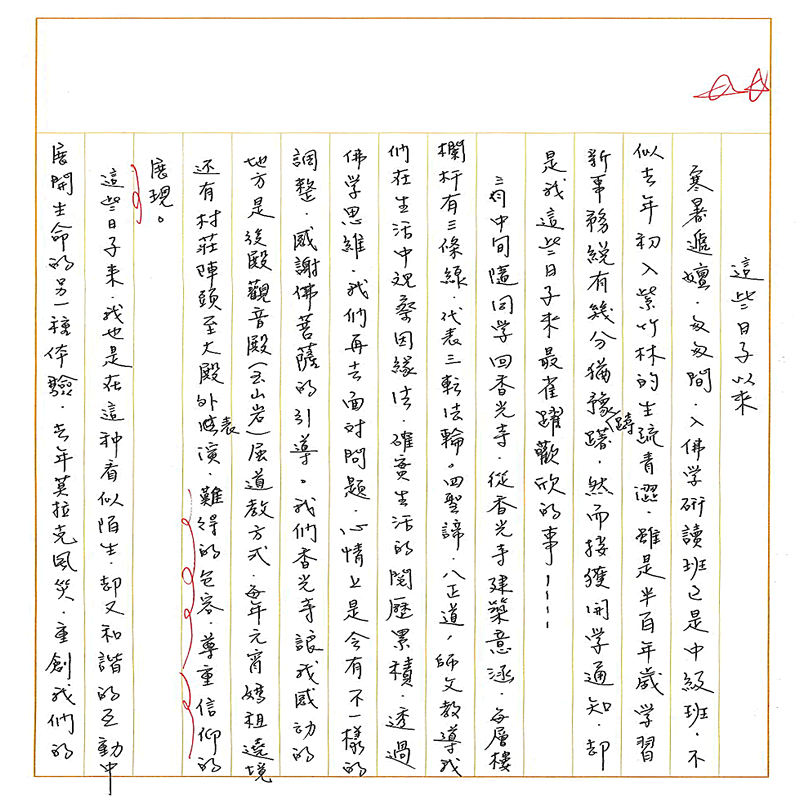 這些日子以來
寒暑遞嬗．匆匆間．入佛学研讀班已是中級班．不
似去年初入紫竹林的生疏青澀．雖是半百年歲学習
新事務総有幾分猶豫躇．然而接獲開学通知．却
躊
是我這些日子來最雀躍歡欣的事----
三月中旬隨同学回香光寺．從香光寺建築意涵．每層樓
欄杆有三條線．代表三転法輪。四聖諦．八正道，師父教導我
們在生活中观察因緣法．確實生活的閱歷累積．透過
佛学思維．我們再去面对問題．心情上是会有不一樣的
調整．感謝佛菩薩的引導。我們香光寺讓我感动的
地方是後殿觀音殿(玉山岩)屈道教方式．每年元宵媽祖遶境
还有村莊陣頭至大殿外演．難得的包容．尊重信仰的
表
展現。
這些日子来．我也是在這种看似陌生．却又和諧的互動中
展開生命的另一種体驗．去年莫拉克風災．重創我們的